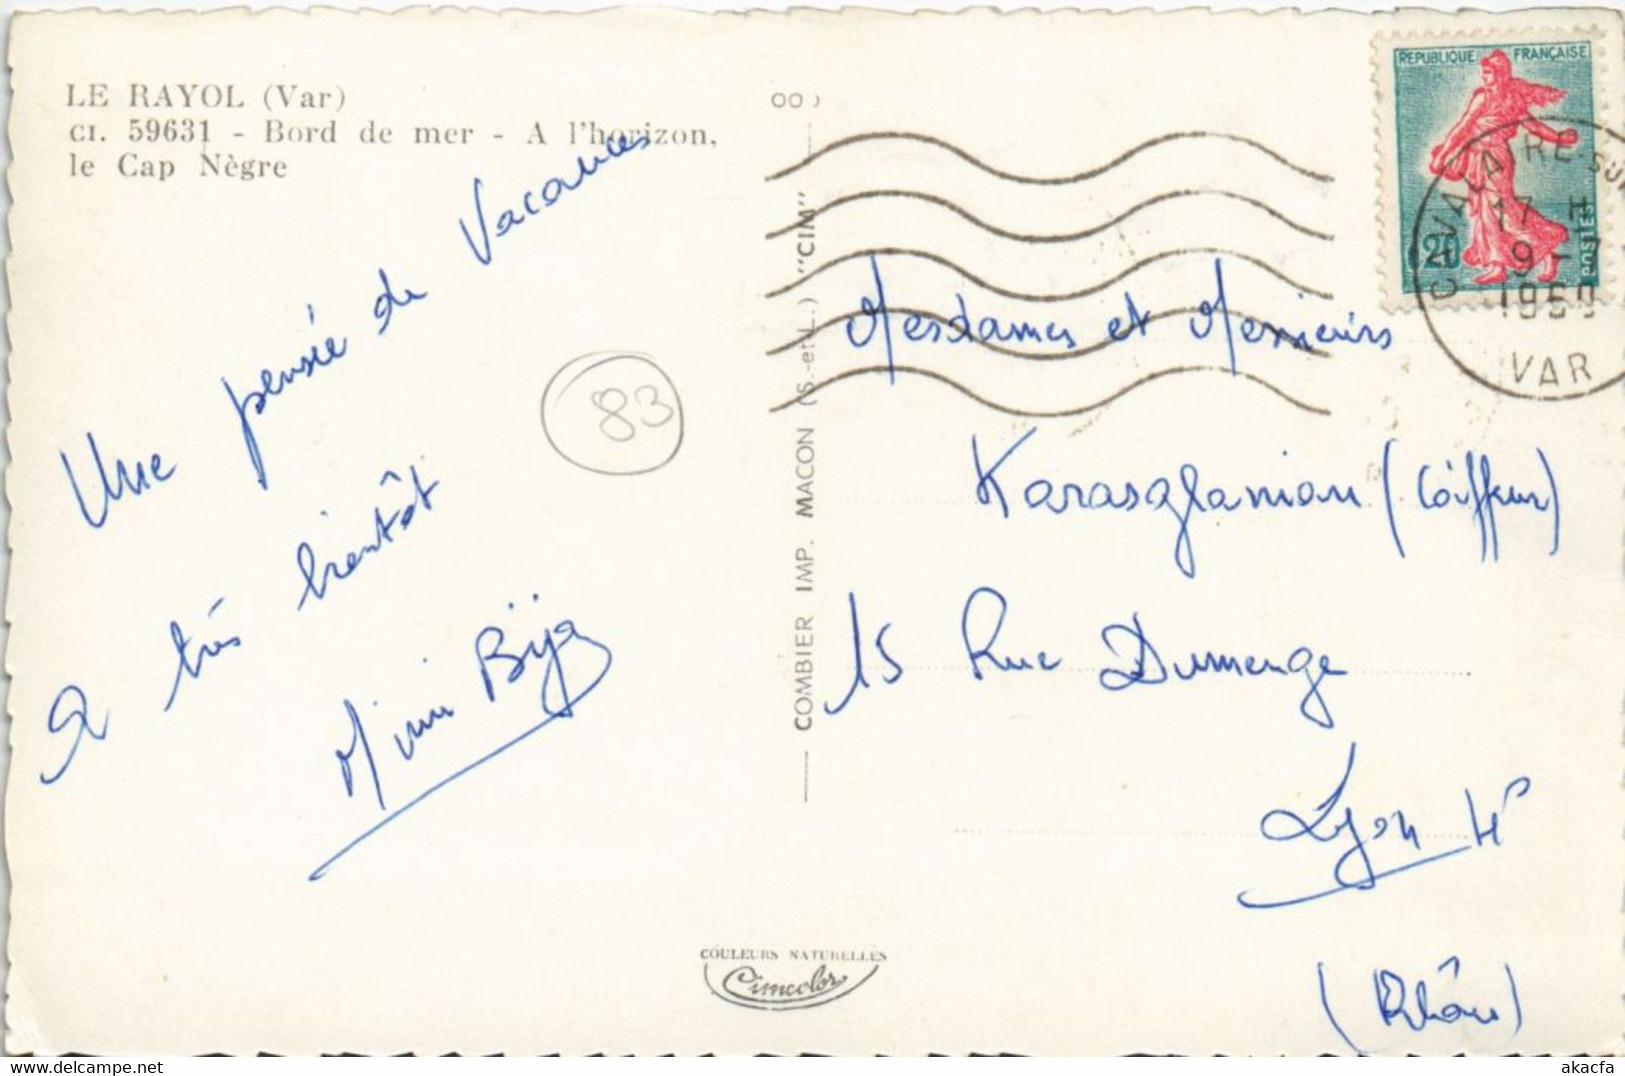 LE RAYOL (Var)
CI. 59631 - Bord de mer - A l'horizon,
le Cap Nègre
Une pensée de Vacances
A très bientôt
83
COMBIER IMP. MACON (S.-et-L.) "CIM"
REPUBLIQUE FRANÇAISE
POSTES
CAVALAIRE-SUR
17 H
9-7
VAR
Mesdames et Messieurs
Karasglanian (Coiffeur)
15 Rue Dumenge
Lyon 4e
(Rhône)
COULEURS NATURELLES
Cimcolor
akacfa